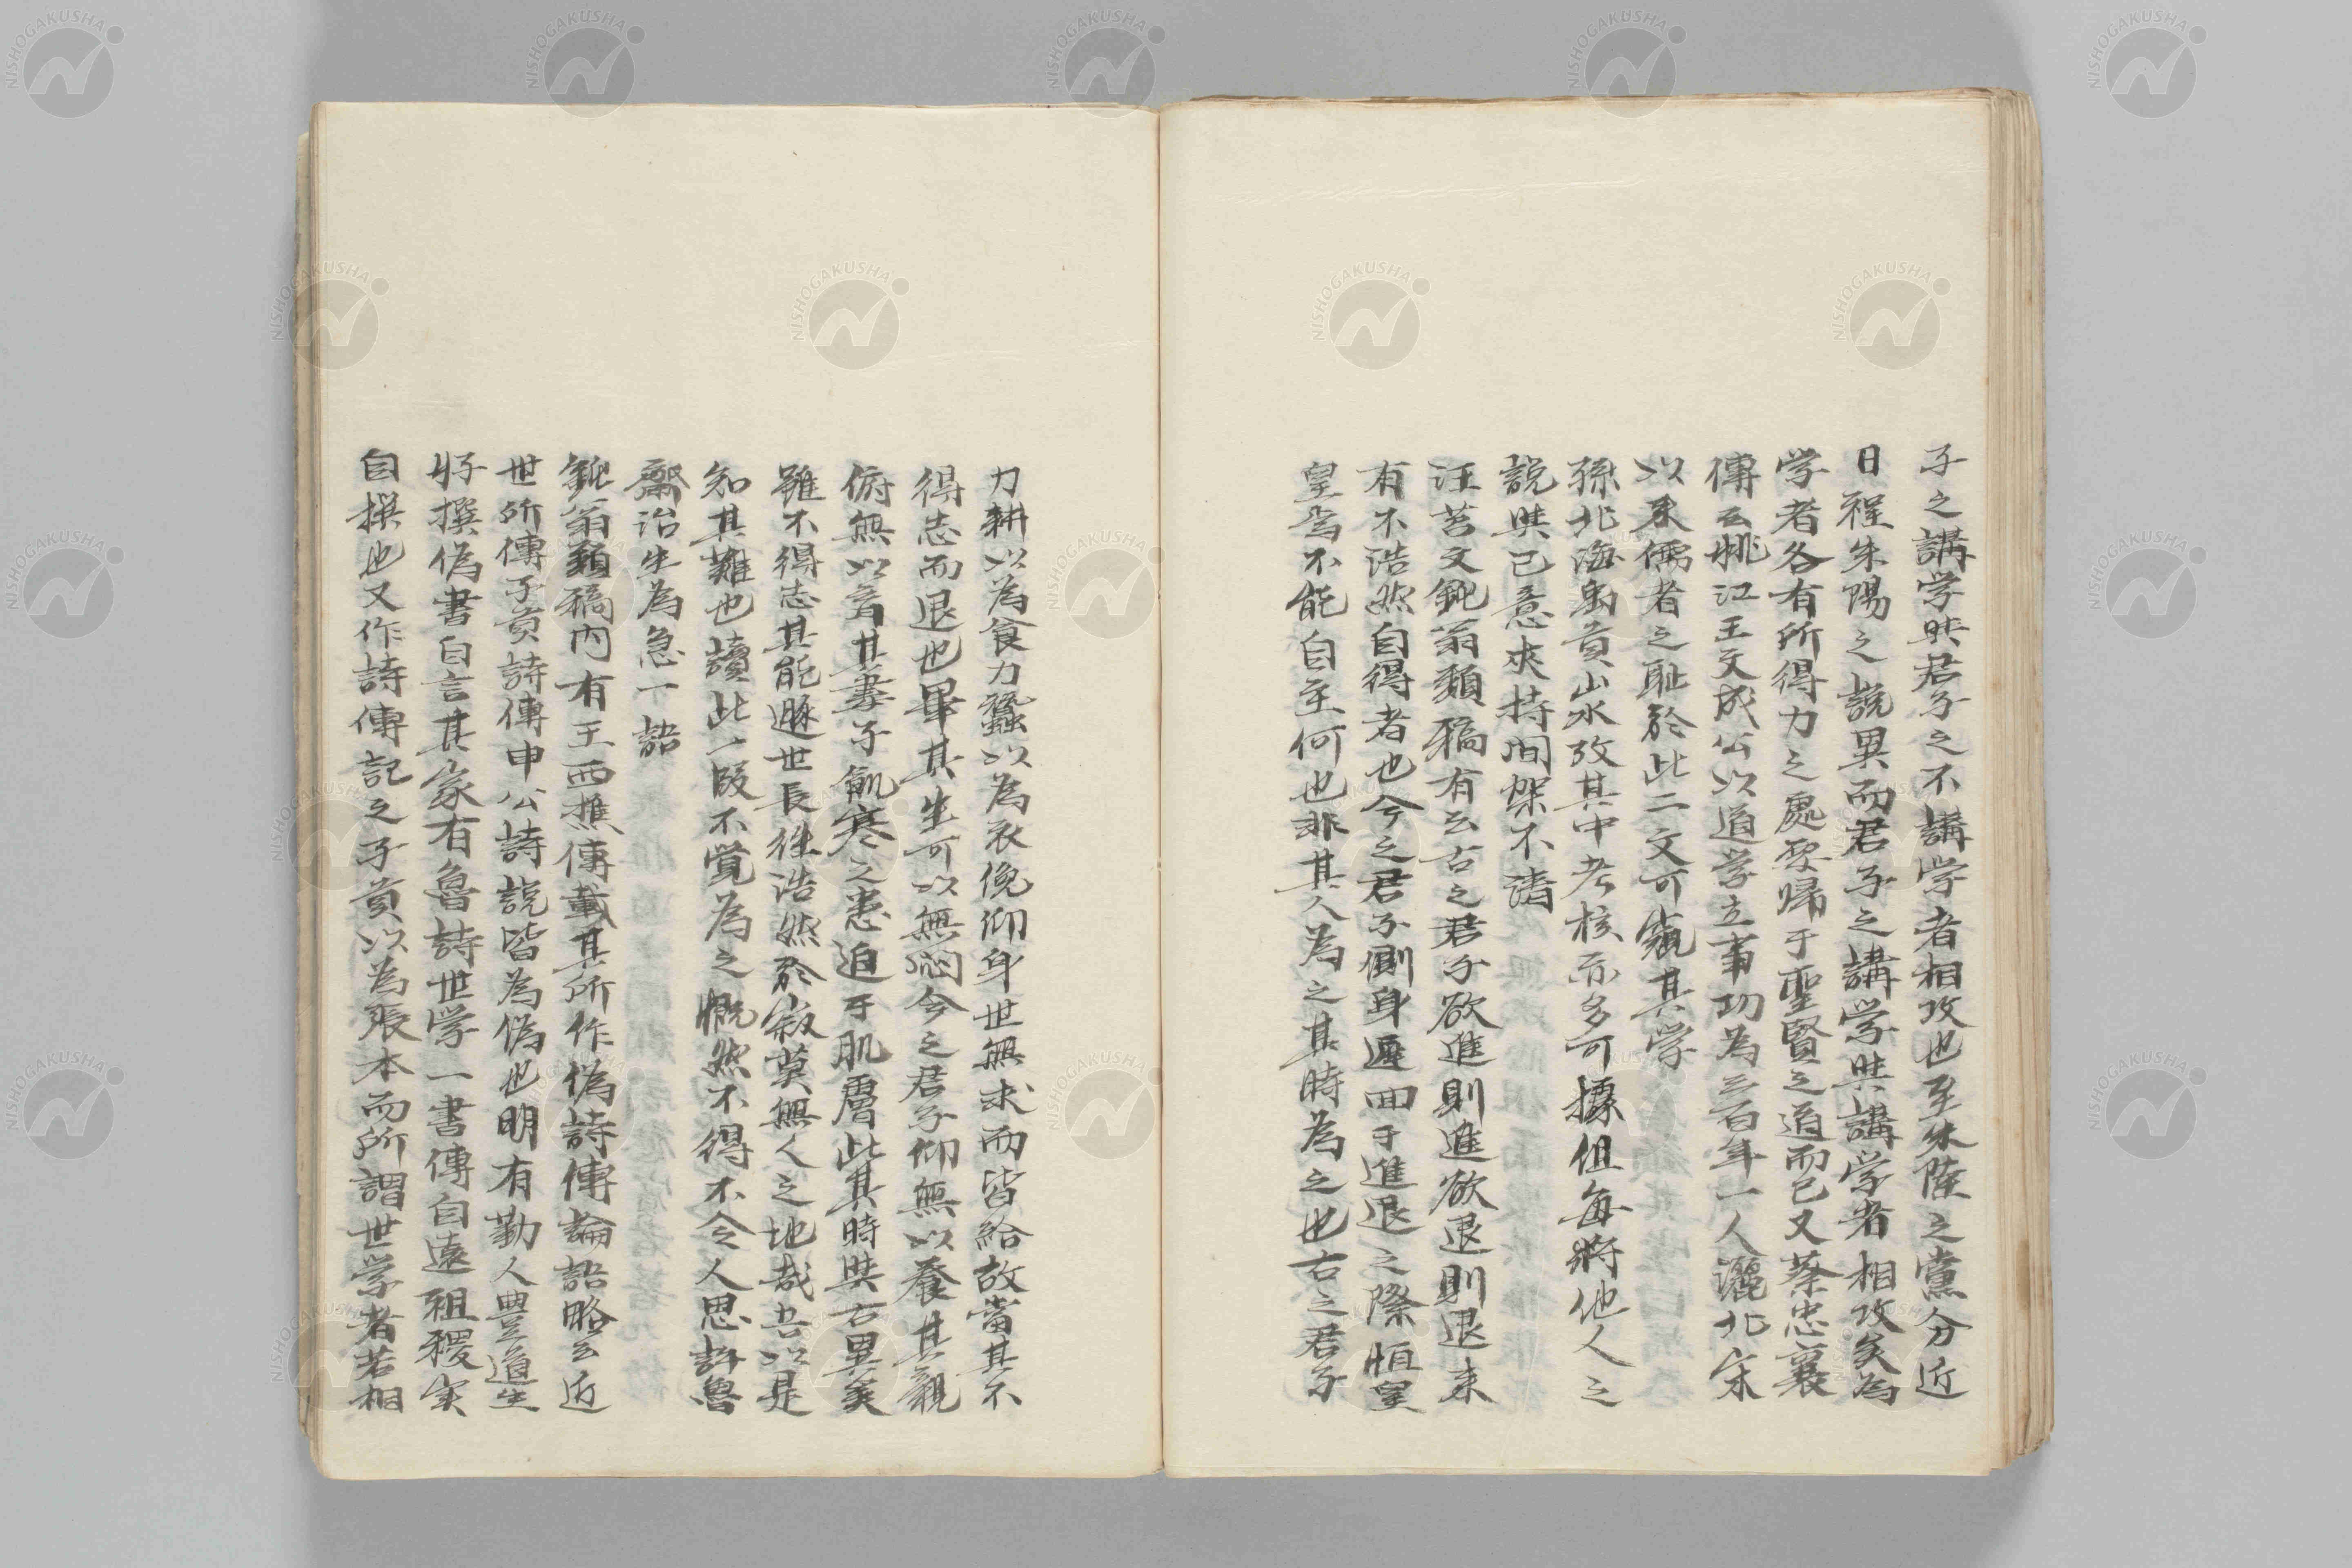 子之講学與君子之不講学者相攻也至朱陸之黨分近
日程朱陽之説異而君子之講学與講学者相攻矣為
学者各有所得力之處要歸于聖賢之道而已又蔡忠襄
傳云姚江王文成公以道学立事功為三百年一人灑北宋
以来儒者之耻於此二文可窺其学
孫北海禹貢山水攷其中考核亦多可據但每將他人之
説與己意夾持间架不清
汪苕文鈍翁類稿有云古之君子欲進則進欲退則退未
有不浩然自得者也今之君子側身遲回于進退之際恒皇
皇焉不能自主何也非其人為之其時為之也古之君子
力耕以為食力蠶以為衣俛仰身世無求而皆給故當其不
得志而退也畢其生可以無悶今之君子仰無以養其親
俯無以畜其妻子飢寒之患迫于肌膚此其時與古異矣
雖不得志其能遯世長往浩然於寂莫無人之地哉吾以是
知其難也讀此一段不覚為之慨然不得不令人思許魯
齋治生為急一語
鈍翁類稿内有王西樵傳載其所作偽詩傳論語略云近
世所傳子貢詩傳申公詩説皆為偽也明有勤人豊道生
好撰偽書自言其家有魯詩世学一書傳自遠祖稷实
自撰也又作詩傳記之子貢以為張本而所謂世学者若相
NISHOGAKUSHA